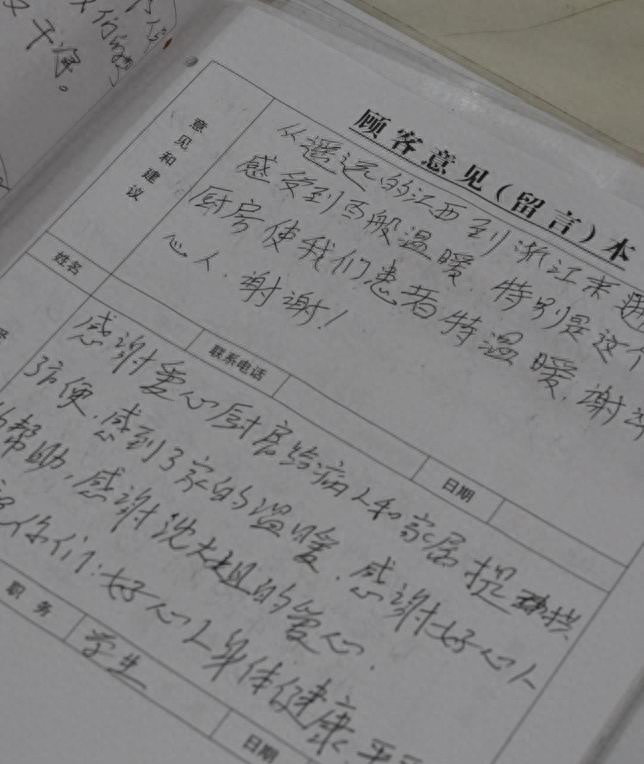 干净。
顾客意见(留言)本
意见和建议
从遥远的江西到浙江来
感受到百般温暖 特别是这个
厨房使我们患者特温暖.谢
心人.谢谢!
姓名
联系电话
日期
感谢爱心厨房给病人和家属提 供
方便.感到了家的温暖.感谢好心人
帮助,感谢沈大姐的爱心.
你们:好心人身体健康
职务
学生
日期